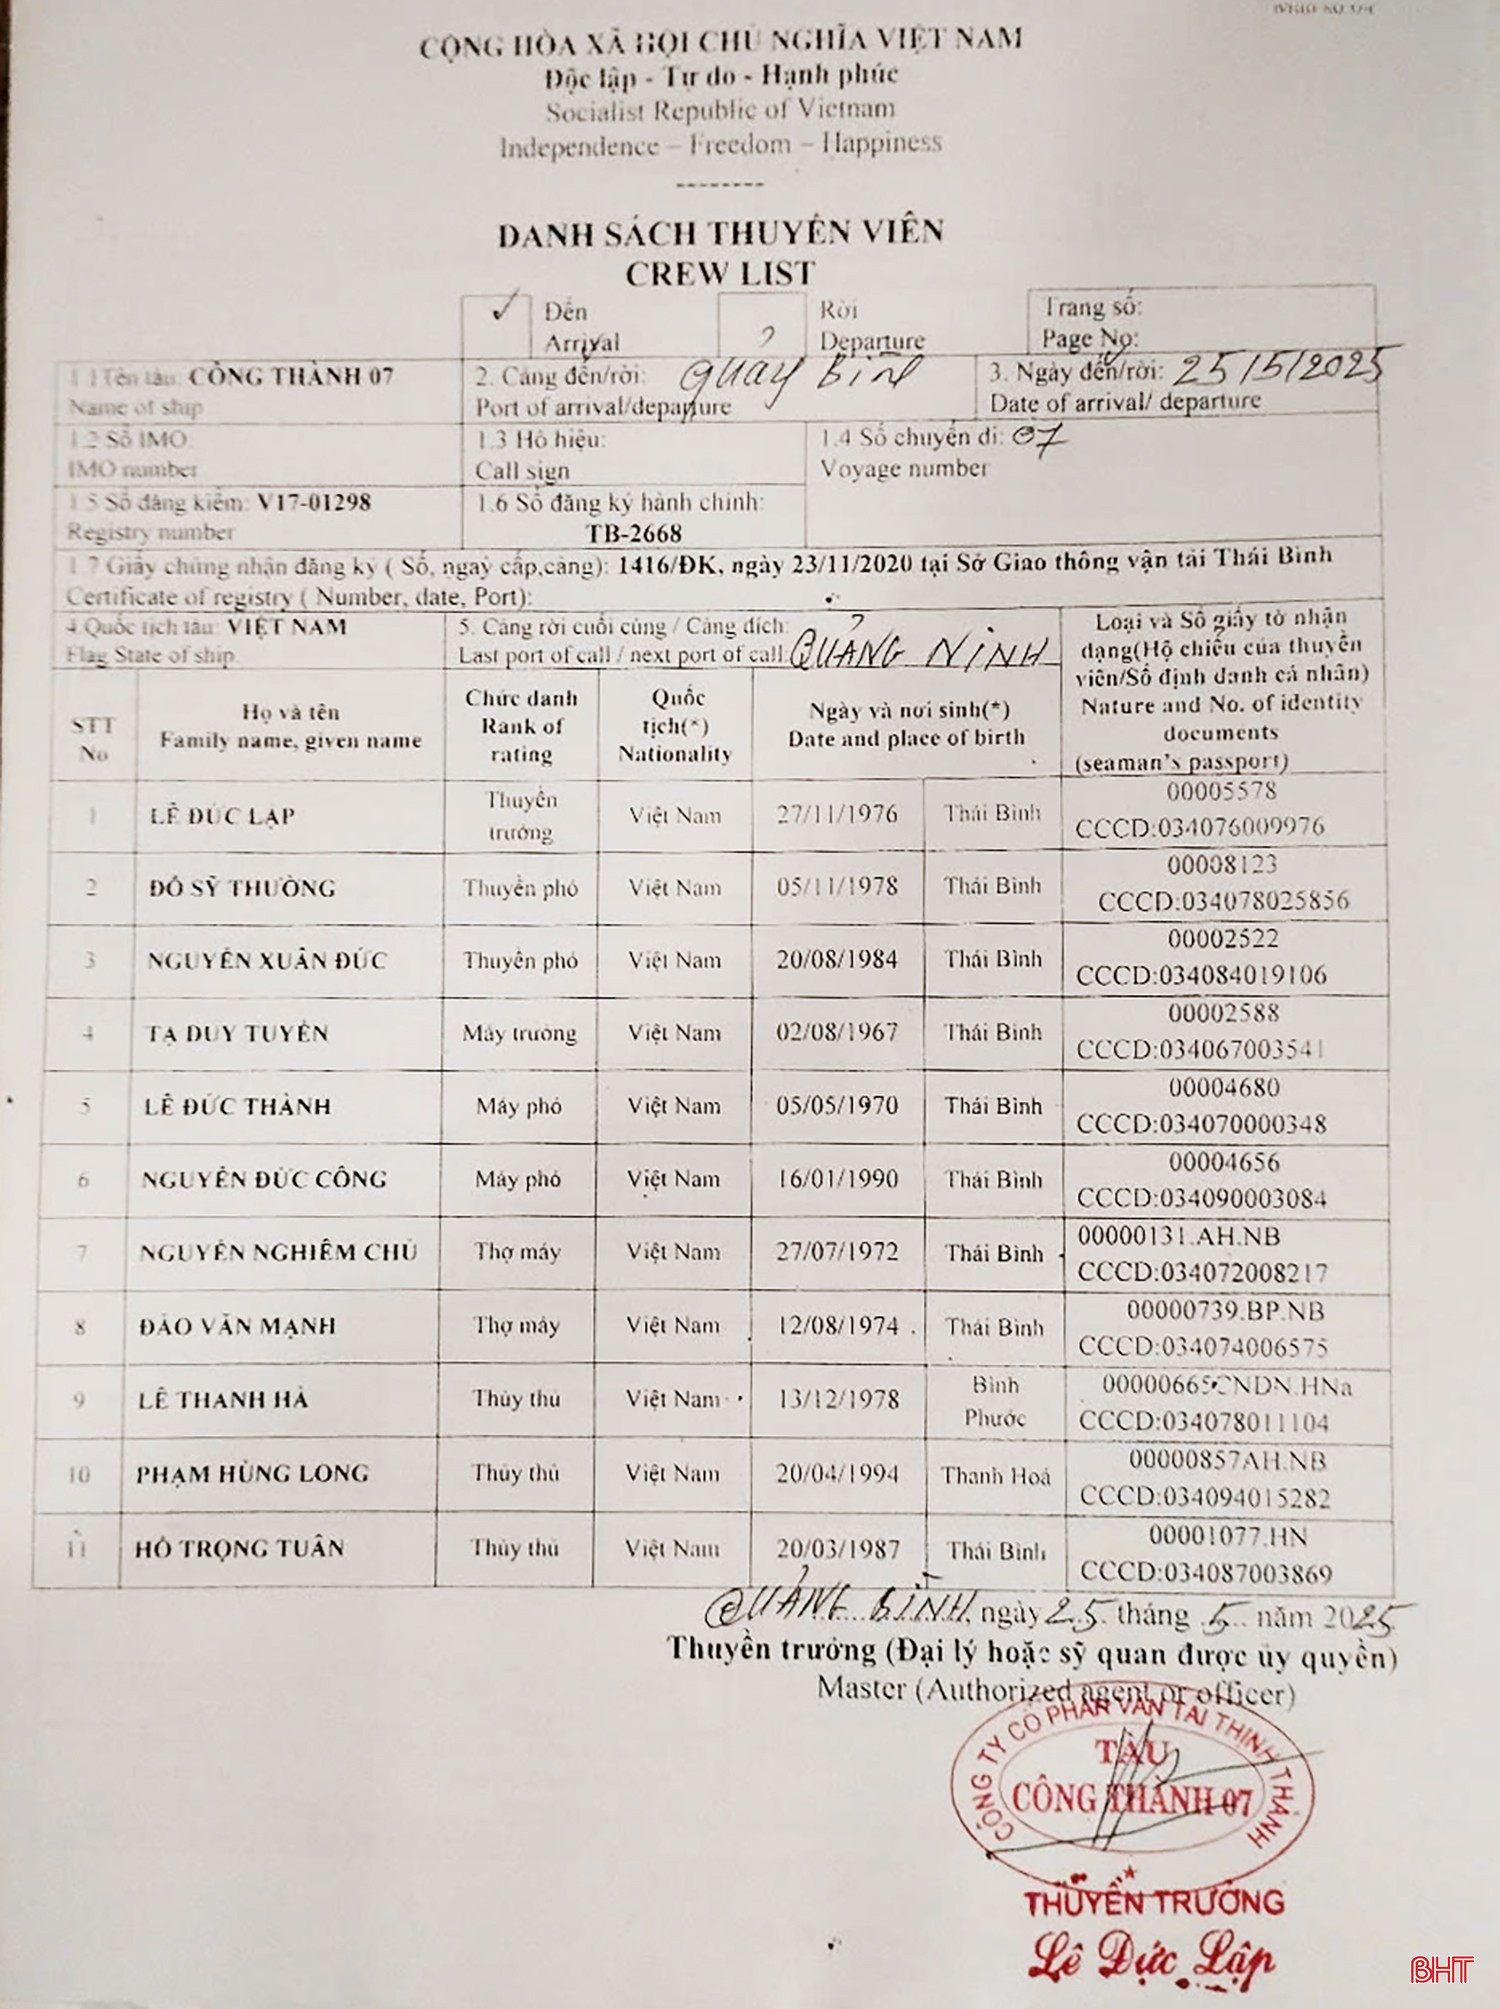 CỘNG HÒA XÃ HỘI CHỦ NGHĨA VIỆT NAM
Độc lập - Tự do - Hạnh phúc
Socialist Republic of Vietnam
Independence – Freedom – Happiness
--------
DANH SÁCH THUYỀN VIÊN
CREW LIST
✓ Đến Rời Trang số:
Arrival Departure Page No:
1.1 Tên tàu: CÔNG THÀNH 07 2. Cảng đến/rời: 3. Ngày đến/rời: 25/5/2025
Name of ship Port of arrival/departure Date of arrival/ departure
1.2 Số IMO: 1.3 Hô hiệu: 1.4 Số chuyến đi: 07
IMO number Call sign Voyage number
1.5 Số đăng kiểm: V17-01298 1.6 Số đăng ký hành chính:
Registry number TB-2668
1.7 Giấy chứng nhận đăng ký ( Số, ngaỳ cấp,cảng): 1416/ĐK, ngày 23/11/2020 tại Sở Giao thông vận tải Thái Bình
Certificate of registry ( Number, date, Port):
4.Quốc tịch tàu: VIỆT NAM 5. Cảng rời cuối cùng / Cảng đích:
Flag State of ship Last port of call / next port of call: QUẢNG NINH
Loại và Số giấy tờ nhận
dạng(Hộ chiếu của thuyền
viên/Số định danh cá nhân)
Nature and No. of identity
documents
(seaman's passport)
STT
No
Họ và tên
Family name, given name
Chức danh
Rank of
rating
Quốc
tịch(*)
Nationality
Ngày và nơi sinh(*)
Date and place of birth
1 LÊ ĐỨC LẬP Thuyền trưởng Việt Nam 27/11/1976 Thái Bình 00005578
CCCD:034076009976
2 ĐỖ SỸ THƯỜNG Thuyền phó Việt Nam 05/11/1978 Thái Bình 00008123
CCCD:034078025856
3 NGUYỄN XUÂN ĐỨC Thuyền phó Việt Nam 20/08/1984 Thái Bình 00002522
CCCD:034084019106
4 TẠ DUY TUYẾN Máy trưởng Việt Nam 02/08/1967 Thái Bình 00002588
CCCD:034067003541
5 LÊ ĐỨC THÀNH Máy phó Việt Nam 05/05/1970 Thái Bình 00004680
CCCD:034070000348
6 NGUYỄN ĐỨC CÔNG Máy phó Việt Nam 16/01/1990 Thái Bình 00004656
CCCD:034090003084
7 NGUYỄN NGHIÊM CHỦ Thợ máy Việt Nam 27/07/1972 Thái Bình 00000131.AH.NB
CCCD:034072008217
8 ĐÀO VĂN MẠNH Thợ máy Việt Nam 12/08/1974 Thái Bình 00000739.BP.NB
CCCD:034074006575
9 LÊ THANH HÀ Thủy thủ Việt Nam 13/12/1978 Bình Phước
CCCD:034078011104
10 PHẠM HÙNG LONG Thủy thủ Việt Nam 20/04/1994 Thanh Hoá 00000857AH.NB
CCCD:034094015282
11 HỒ TRỌNG TUÂN Thủy thủ Việt Nam 20/03/1987 Thái Bình 00001077.HN
CCCD:034087003869
QUẢNG BÌNH, ngày 25 tháng 5 năm 2025
Thuyền trưởng (Đại lý hoặc sỹ quan được ủy quyền)
Master (Authorized agent or officer)
CÔNG TY CỔ PHẦN VẬN TẢI THỊNH THÀNH
TÀU
CÔNG THÀNH 07
THUYỀN TRƯỞNG
Lê Đức Lập
BHT